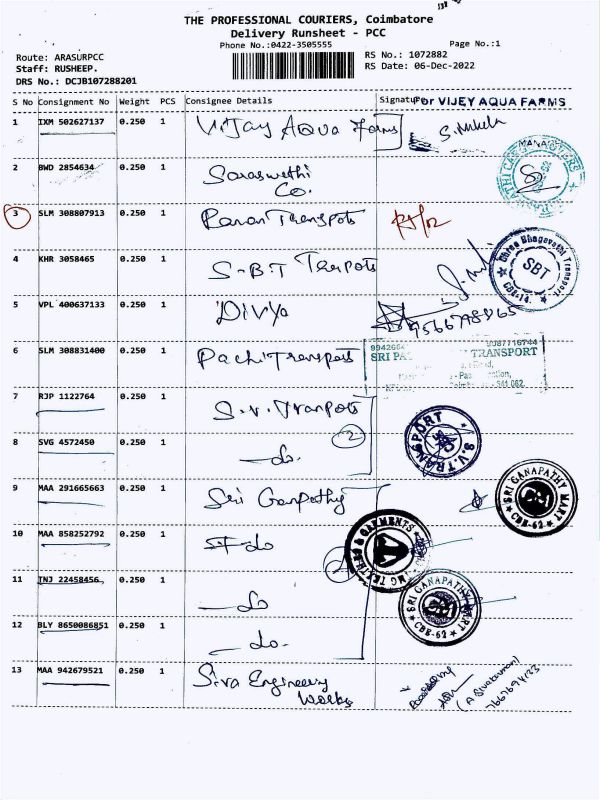 THE PROFESSIONAL COURIERS, Coimbatore
Delivery Runsheet - PCC
Phone No.:0422-3505555
Page No.:1
Route: ARASURPCC
Staff: RUSHEEP.
DRS No.: DCJB107288201
RS No.: 1072882
RS Date: 06-Dec-2022
S No Consignment No Weight PCS Consignee Details Signature
For VIJEY AQUA FARMS
1 IXM 502627137 0.250 1 Vijay Aqua Farms
MANAG
2 BWD 2854634 0.250 1 Saraswathi
Co.
3 SLM 308807913 0.250 1 Ranan Transpots
4 KHR 3058465 0.250 1 S-B-T Tranpots
Shree Bhagavathi Transport
SBT
CBE-14.
5 VPL 400637133 0.250 1 Divya
6 SLM 308831400 0.250 1 Pachi Transport
9087716744
SRI PA TRANSPORT
7 RJP 1122764 0.250 1 S.V. Tranpots
2
8 SVG 4572450 0.250 1 —do.
S.V. TRANSPORT
9 MAA 291665663 0.250 1 Sri Ganpathy
SRI GANAPATHY MART
CBE-62
10 MAA 858252792 0.250 1 do
TEXTILES & GARMENTS
11 TNJ 22458456 0.250 1 —do
SRI GANAPATHY MART
CBE-62
12 BLY 8650086851 0.250 1 —do.
13 MAA 942679521 0.250 1 Siva Engineery
Works